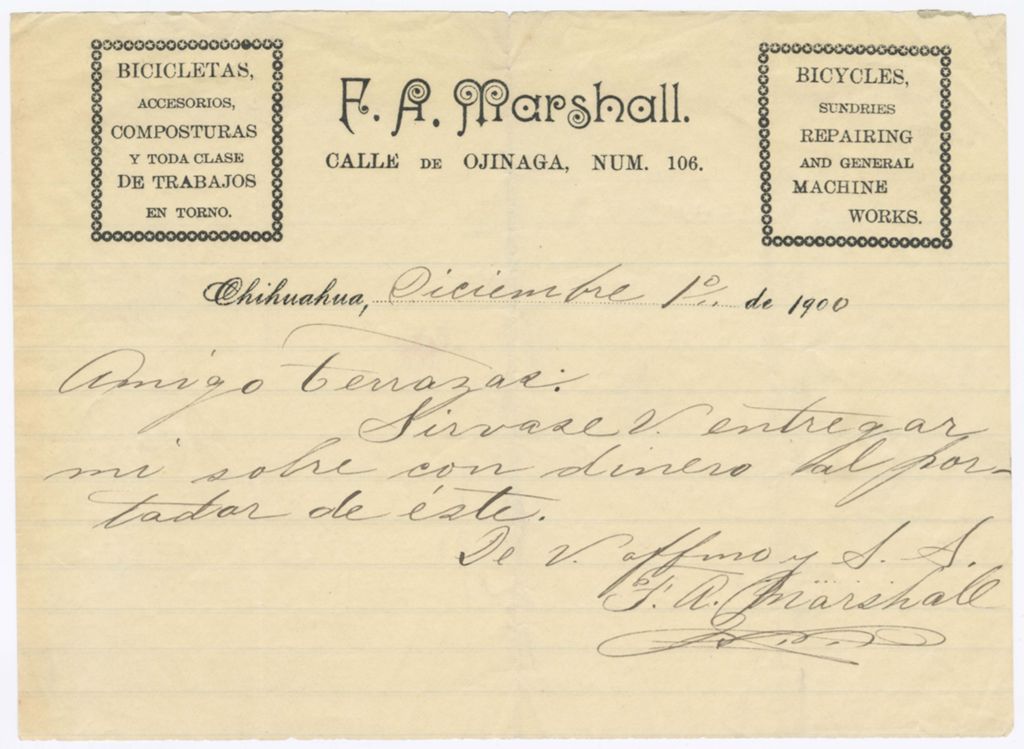 BICICLETAS,
ACCESORIOS,
COMPOSTURAS
Y TODA CLASE
DE TRABAJOS
EN TORNO.
F. A. Marshall.
CALLE DE OJINAGA, NUM. 106.
BICYCLES,
SUNDRIES
REPAIRING
AND GENERAL
MACHINE
WORKS.
Chihuahua, Diciembre 1º de 1900
Amigo Terrazas:
Sirvase V. entregar
mi sobre con dinero al por-
tador de éste.
De V. affmo y S. S.
F. A. Marshall